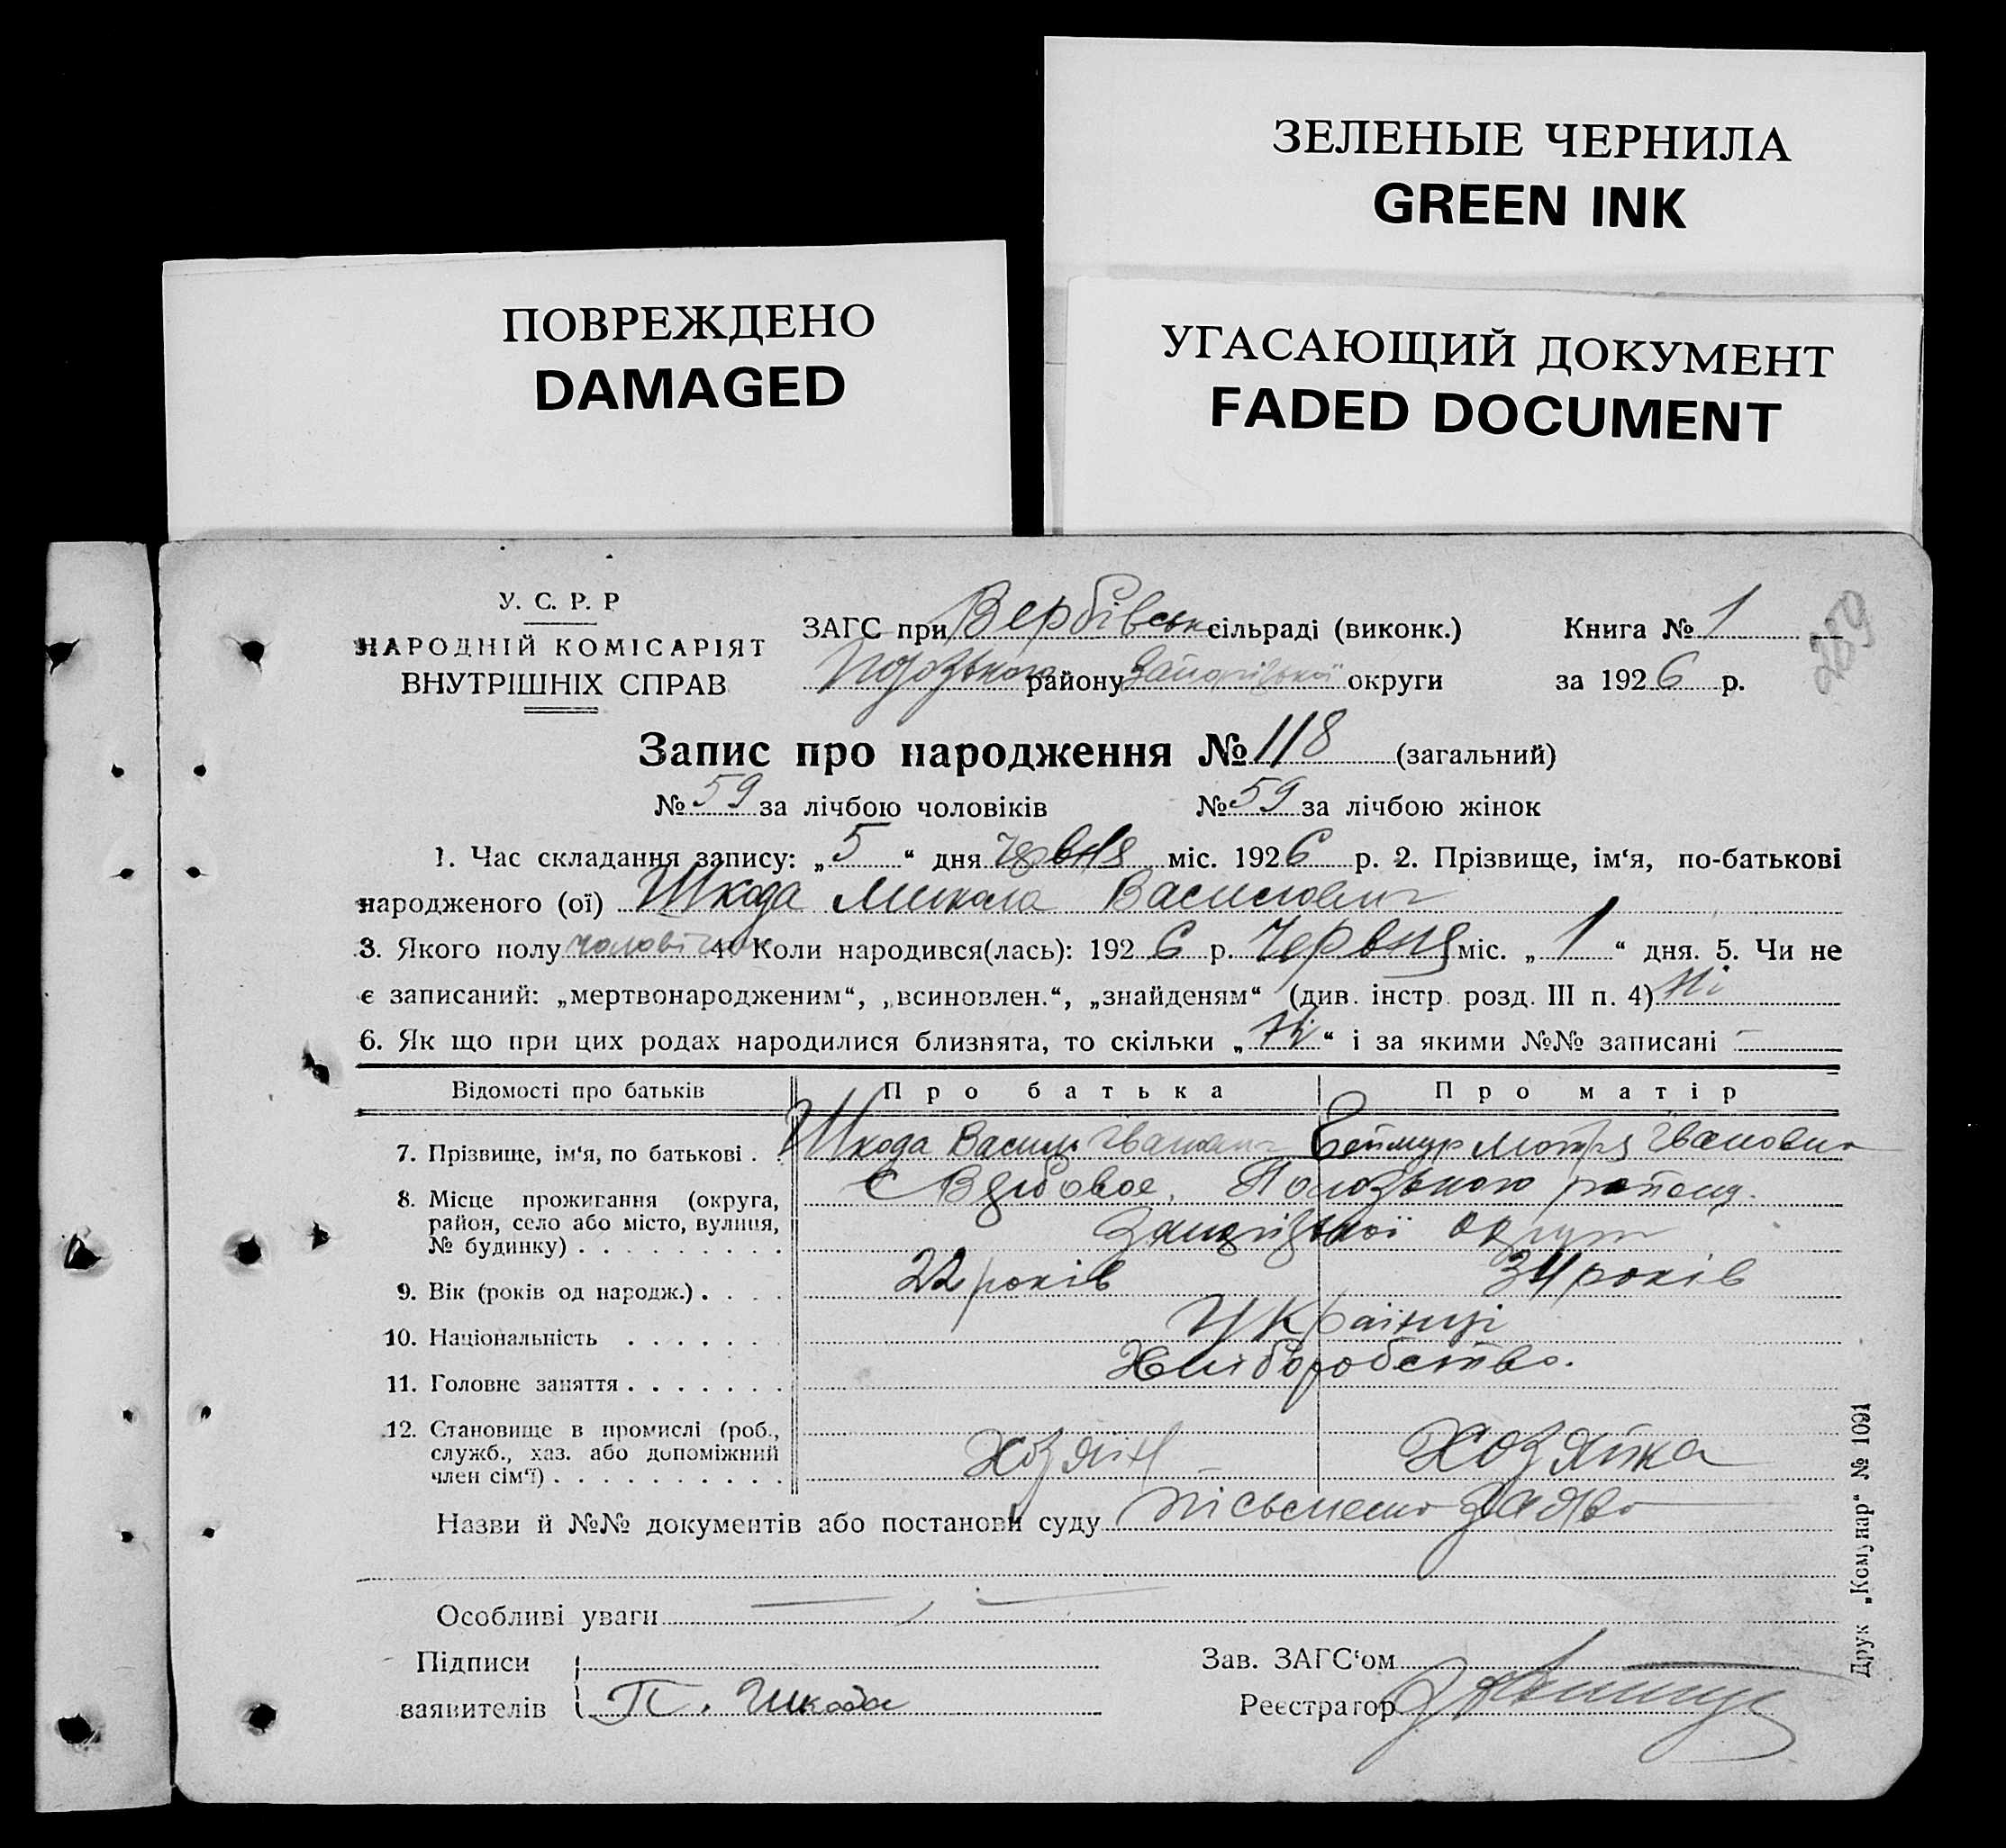 ЗЕЛЕНЫЕ ЧЕРНИЛА
GREEN INK
ПОВРЕЖДЕНО
DAMAGED
УГАСАЮЩИЙ ДОКУМЕНТ
FADED DOCUMENT
У. С. Р. Р
НАРОДНІЙ КОМІСАРІЯТ
ВНУТРІШНІХ СПРАВ
ЗАГС при Вербівськ сільраді (виконк.)
району Запорізької округи
Книга № 1
за 1926 р.
259
Запис про народження № 118 (загальний)
№ 59 за лічбою чоловіків № 59 за лічбою жінок
1. Час складання запису: „5“ дня червня міс. 1926 р. 2. Прізвище, ім‘я, по-батькові
народженого (ої) Шкода Микола Васильович
3. Якого полу чоловічого 4. Коли народився(лась): 1926 р. Червня міс. „1“ дня. 5. Чи не
є записаний: „мертвонародженим“, „всиновлен.“, „знайденям“ (див. інстр. розд. III п. 4) Ні
6. Як що при цих родах народилися близнята, то скільки „Ні“ і за якими №№ записані —
Відомості про батьків Про батька Про матір
7. Прізвище, ім‘я, по батькові . . Шкода Василь Іванович Мотря Івановна
8. Місце проживання (округа, район, село або місто, вулиця, № будинку) . . . . . . . . . с Вербовое, Полозького району
Запорізької округи
9. Вік (років од народж.) . . . . 22 років 34 років
10. Національність . . . . . . . Українці
11. Головне заняття . . . . . . . Хліборобство.
12. Становище в промислі (роб., служб., хаз. або допоміжний член сім‘ї) . . . . . . . . . . Хозяїн Хозяйка
Назви й №№ документів або постанови суду заява
Особливі уваги —
Підписи
заявителів П. Шкода
Зав. ЗАГС‘ом
Реєстратор
Друк „Комунар“ № 1091